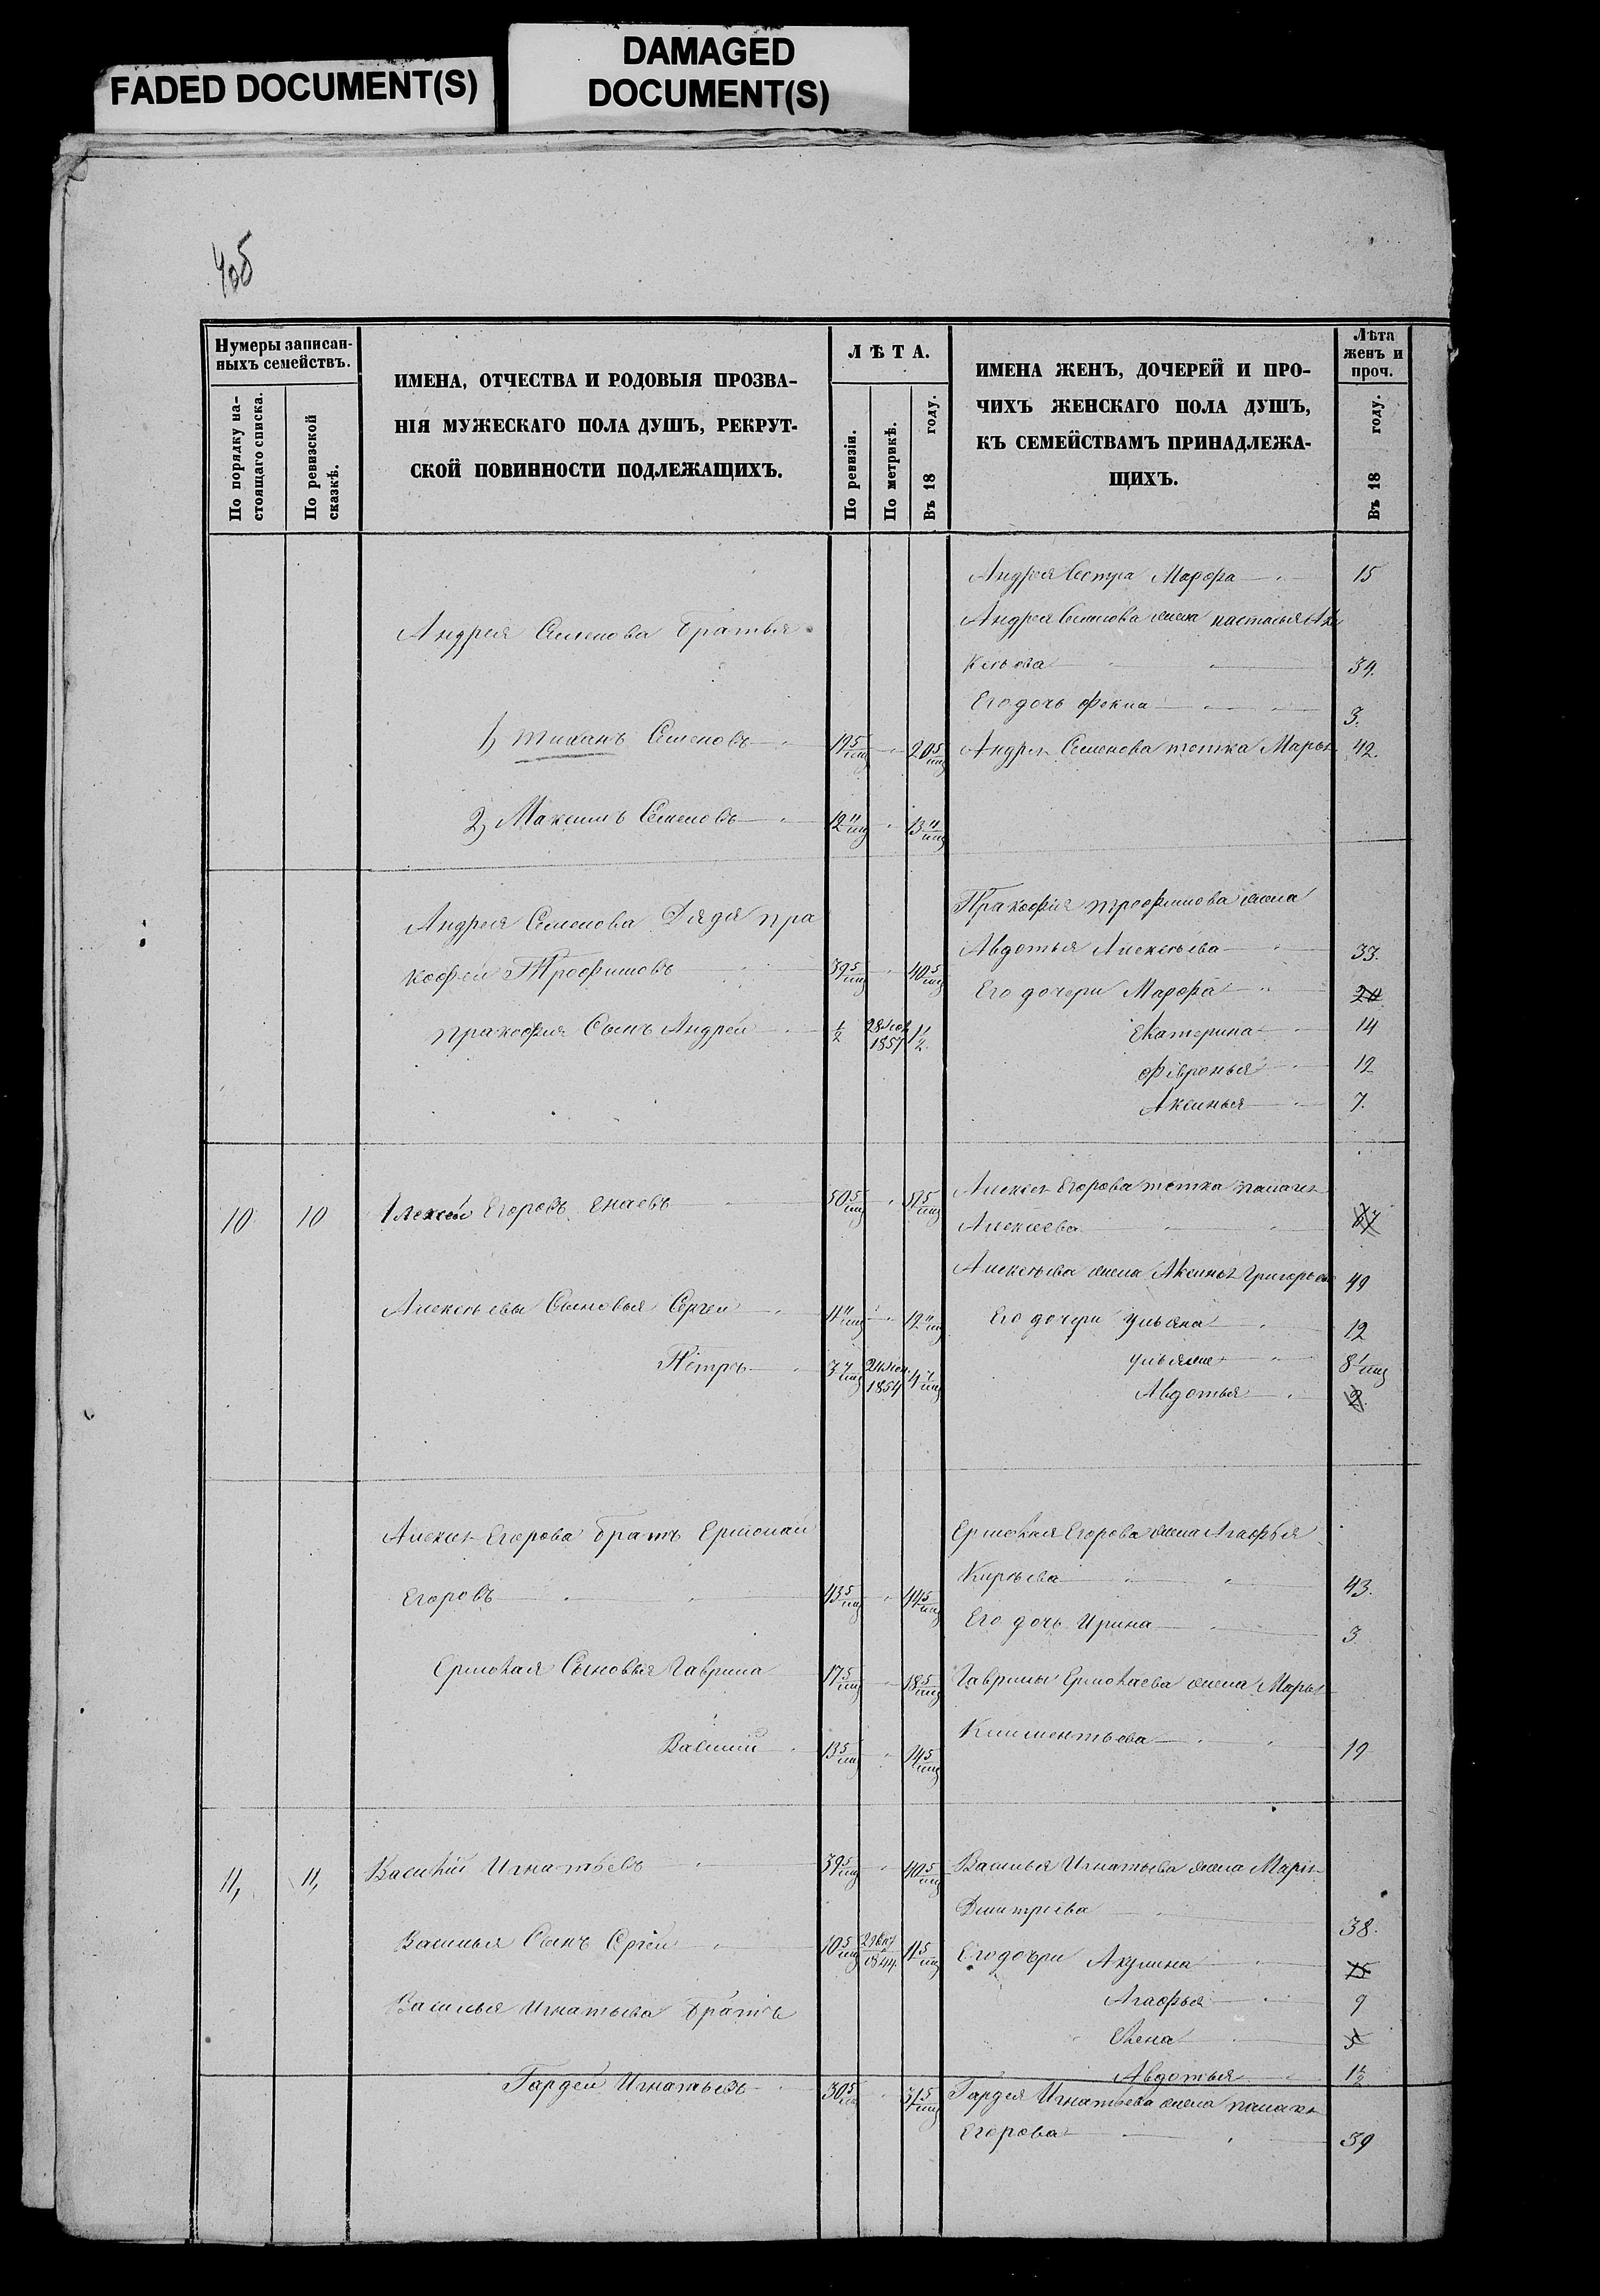 FADED DOCUMENT(S)
DAMAGED
DOCUMENT(S)
405
Нумеры записан-
ныхъ семействъ.
По порядку на-
стоящаго списка.
По ревизской
сказкѣ.
ИМЕНА, ОТЧЕСТВА И РОДОВЫЯ ПРОЗВА-
НІЯ МУЖЕСКАГО ПОЛА ДУШЪ, РЕКРУТ-
СКОЙ ПОВИННОСТИ ПОДЛЕЖАЩИХЪ.
ЛѢТА.
По ревизіи.
По метрикѣ.
Въ 18 году.
ИМЕНА ЖЕНЪ, ДОЧЕРЕЙ И ПРО-
ЧИХЪ ЖЕНСКАГО ПОЛА ДУШЪ,
КЪ СЕМЕЙСТВАМЪ ПРИНАДЛЕЖА-
ЩИХЪ.
Лѣта
женъ и
проч.
Въ 18 году.
Андрея Сестра Марфа 15
Андрея Семенова братья
Андрея Семенова жена настасья
34.
Его дочь Фекла 3.
1) Тиханъ Семеновъ 19 5/мц 20 5/мц
Андрея Семенова тетка Марья 42.
2) Максимъ Семеновъ 12 11/мц 13 11/мц
Андрея Семенова Дядя пра
кофей Трофимовъ 39 5/мц 40 5/мц
Пракофія трофимова жена
Авдотья Алексѣева 33.
Его дочери Марфа 20
пракофія Сынъ Андрей 1/2 1857 1 1/2
Екатерина 14
Февронья 12
Аксинья 7.
10 10 Алексей Егоровъ Енаевъ 50 5/мц 51 5/мц
Алексея Егорова тетка
Алексеева 67
Алексѣева жена Аксинья Григорьева 49
Алексѣевы Сыновья Сергей 11 11/мц 12 11/мц
Его дочери Ульяна 12
Петръ 3 7/мц 1854 4 7/мц
8 1/мц
Авдотья 2
Алексея Егорова братъ Ермолай
Егоровъ 43 5/мц 44 5/мц
Ермолая Егорова жена Агафья
43.
Его дочь Ирина 3
Ермолая Сыновья Гаврила 17 5/мц 18 5/мц
Гаврилы Ермолаева жена Марья
Климентьева 19
Василий 13 5/мц 14 5/мц
11, 11, Василій Игнатьевъ 39 5/мц 40 5/мц
Василья Игнатьева жена Марія
Дмитріева 38.
Василья Сынъ Сергей 10 5/мц 1844 11 5/мц
Его дочери Акулина 15
Агафья 9
Василья Игнатьева братъ
Елена 5
Авдотья 1 1/2
Гардей Игнатьевъ 30 5/мц 31 5/мц
Гардея Игнатьева жена
Егорова 39